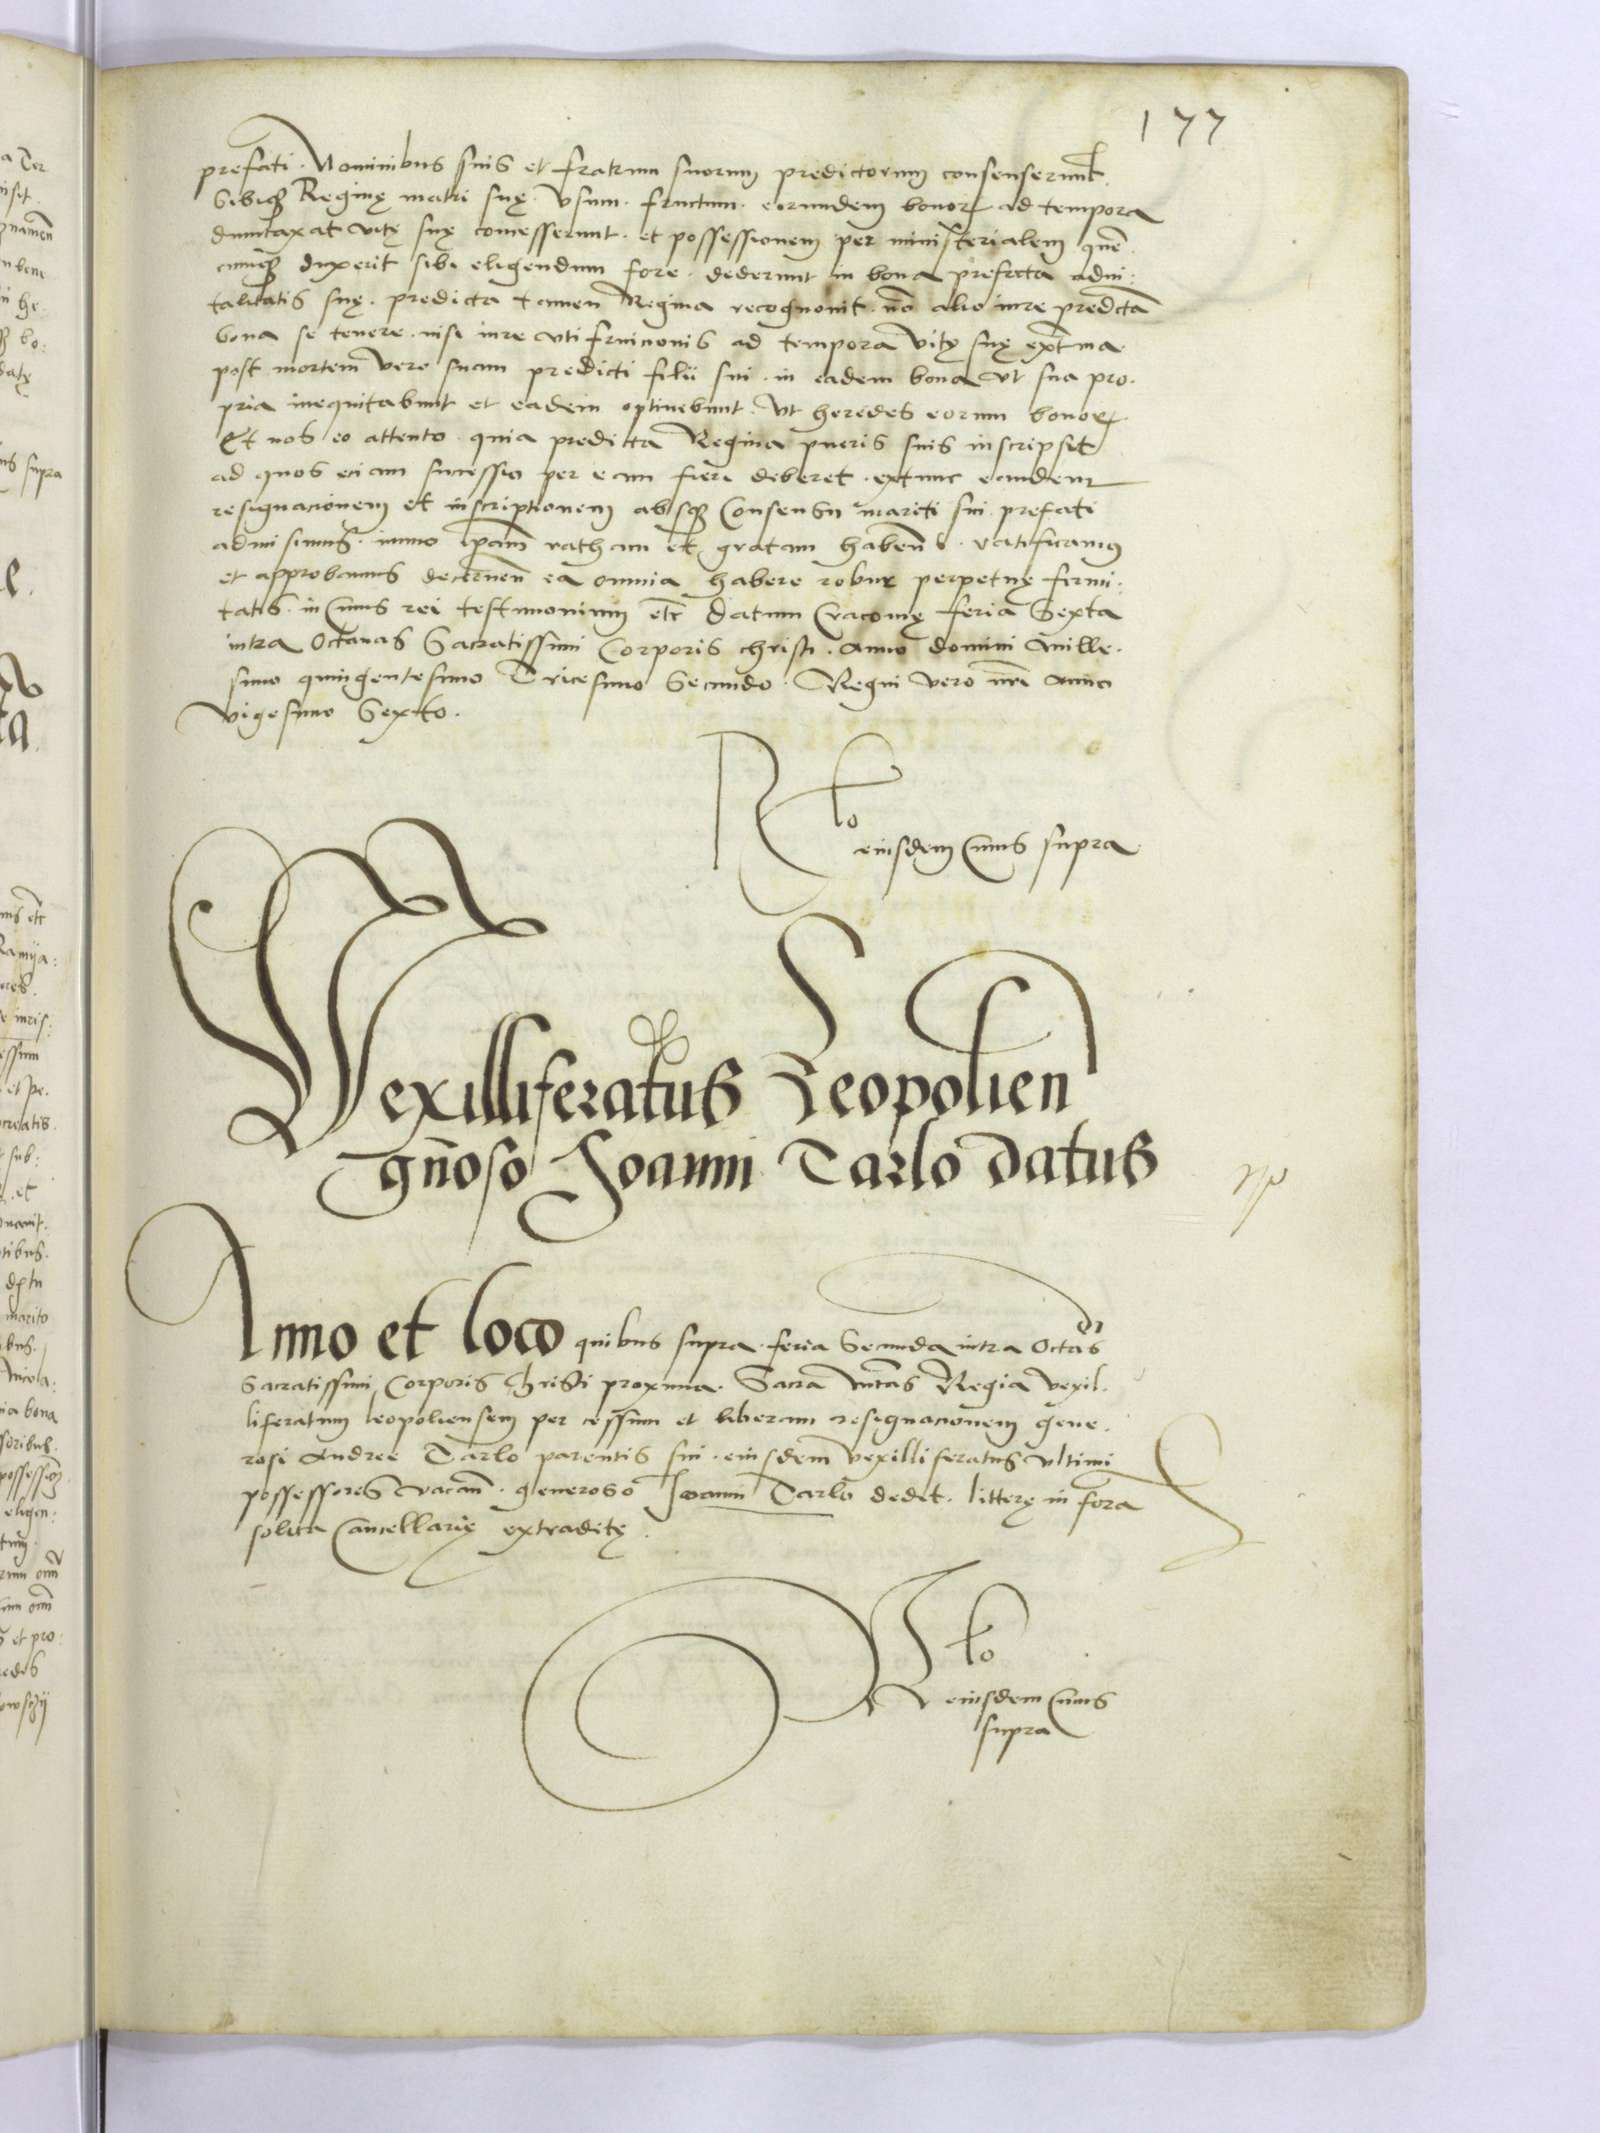 177
prefati. Nominibus suis et fratrum suorum predictorum consenserunt.
Sibique Reginę matri suę. Vsum. fructum. eorundem bonor ad tempora
dumtaxat vitę suę concesserunt. et possessionem per ministerialem quē.
cumque duxerit sibi eligendum fore. dederunt in bona prefata advi:
talitatis suę. predicta tamen Regina recognouit. nō alio iure predictā
bona se tenere. nisi iure vti fruicionis ad tempora vitę suę extrema
post mortem vero suam predicti filii sui. in eadem bona vt sua pro.
pria inequitabunt et eadem optinebunt. Vt heredes eorum bonor
Et nos eo attento. quia predicta Regina pueris suis inscripsit
ad quos eciam successio per eam fieri deberet. extunc eandem
resignacionem et inscriptionem absque Consensu mariti sui prefati
admisimus. immo ipsam ratham et gratam habeñ. ratificamus
et approbamus decerneñ ea omnia habere robur perpetuę firmi:
tatis. in Cuius rei testimonium etc datum Cracouię feria Sexta
intra Octauas Sacratissimi Corporis christi. Anno domini Mille.
simo quingentesimo Tricesimo Secundo. Regni vero nrī Anno
vigesimo Sexto.
Rlo
eiusdem Cuius supra
Vexilliferatus Leopolien
gñoso Joanni Tarlo datus
Anno et loco quibus supra. feria Secunda intra Octās
Sacratissimi Corporis christi proxima. Sacra Mtās Regia vexil.
liferatum leopoliensem per cessum et liberam resignacionem gene.
rosi Andree Tarlo parentis sui. eiusdem vexilliferatus vltimi
possessoris vacañ. generoso Joanni Tarlo dedit. litterę in fora
solita Cancellarię extraditę.
Rlo
eiusdem Cuius
supra